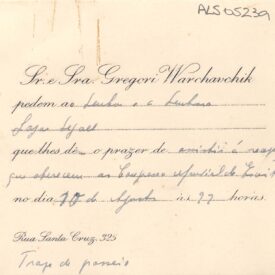 ALS 05239
Sr. e Sra. Gregori Warchavchik
pedem ao Senhor e a Senhora
Lasar Segall
que lhes dê o prazer de assistir á
que oferecem ao
no dia 10 de Agosto às 22 horas.
Rua Santa Cruz, 325
Traje de passeio